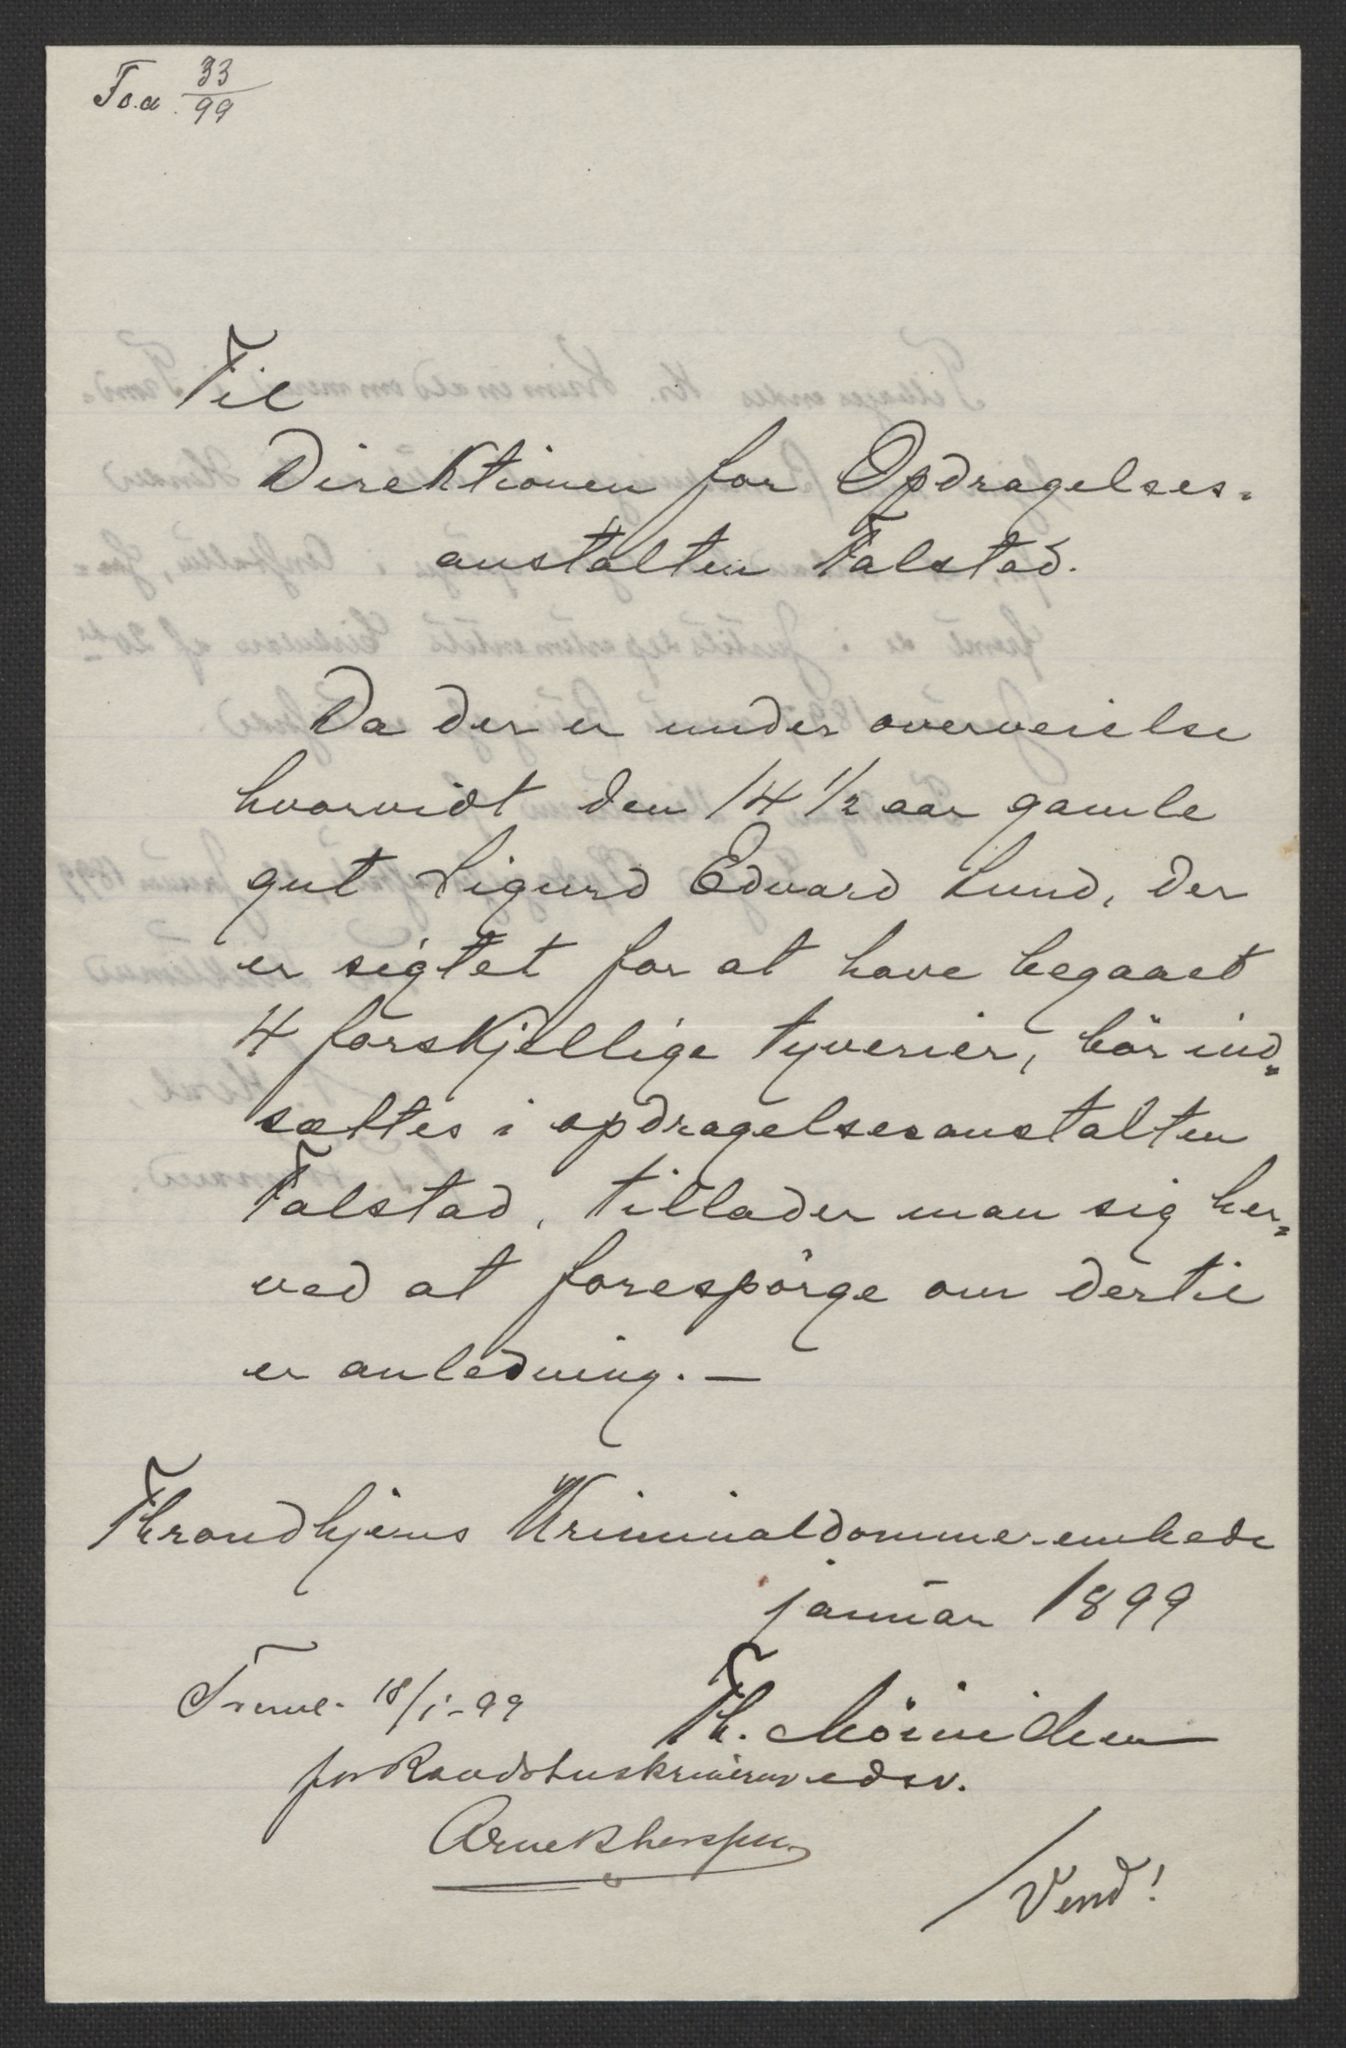 Fo.a. 33/99
Til
Direktionen for Opdragelses=
anstalten Falstad.
Da der er under overveielse
hvorvidt den 14 1/2 aar gamle
gut Sigurd Edvard Lund, der
er sigtet for at have begaaet
4 forskjellige tyverier, bör ind=
sættes i opdragelsesanstalten
Falstad, tillader man sig her=
ved at forespörge om dertil
er anledning. —
Throndhjems Kriminaldommer-embede
januar 1899
18/1-99
Th.
for
Vend!